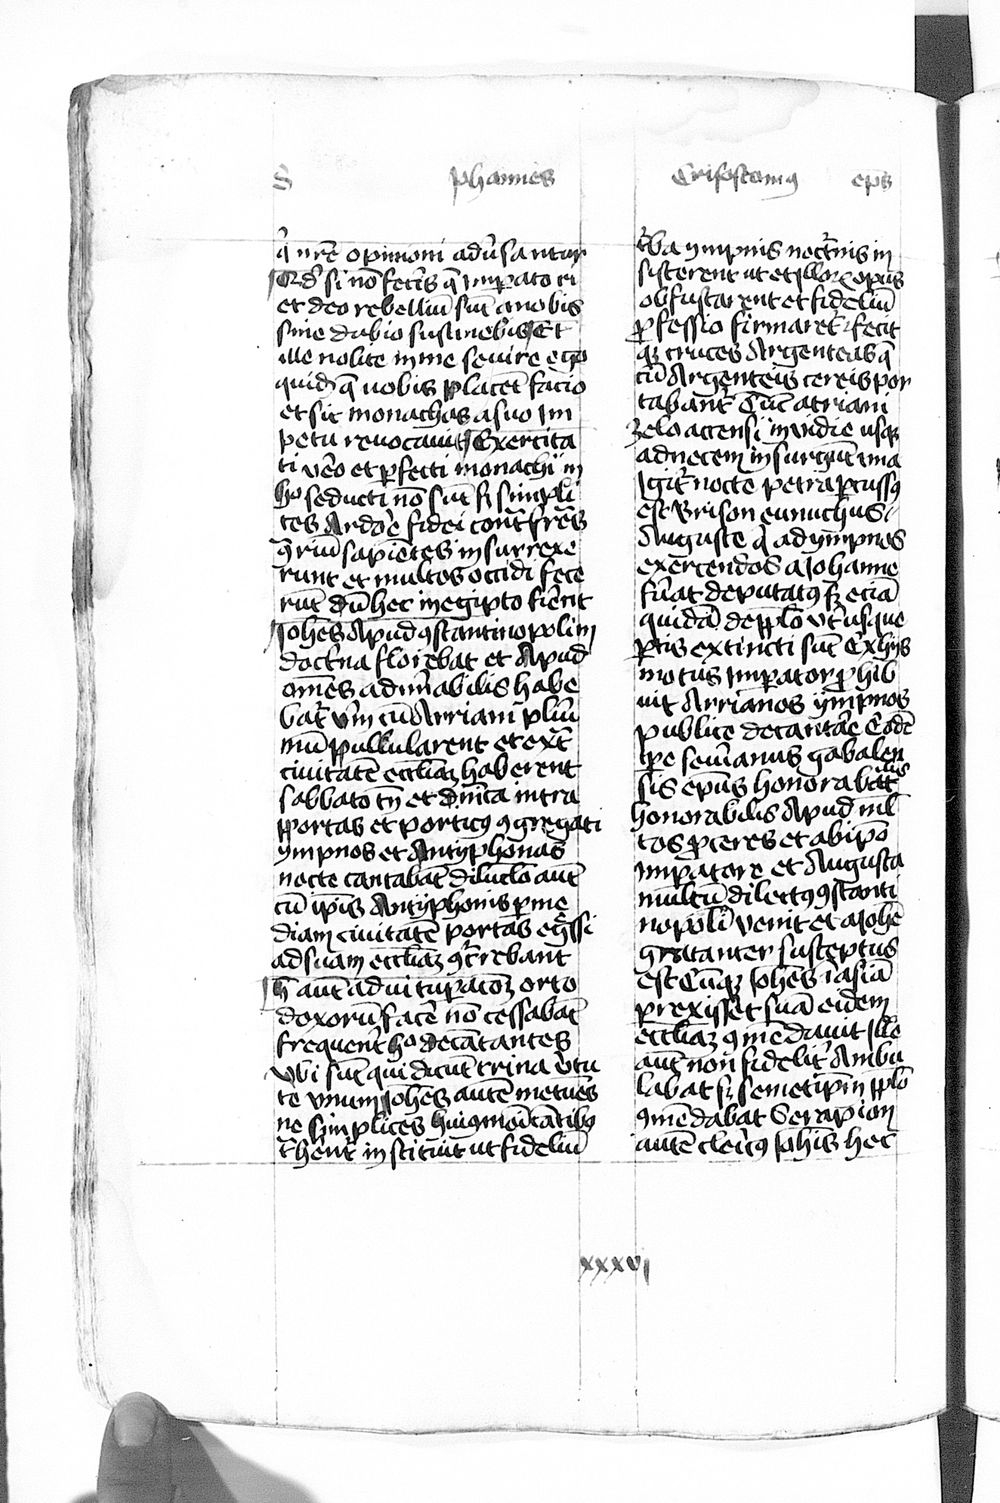 S Johannes Crisostomus eps
q̄ nr̄e opinioni adu̓santur
Qd̓ si nō fecīs q̄ imꝑatori
et deo rebelliū sūt a nobis
sine dubio sustinebis Et
ille nolite in me seuire ego
quidq̄ uobis placet facio
et sic monachos a suo im
petu reuocauit Exercita
ti ūo et ꝑfecti monachi in
hͦ seducti nō sūt sꝫ simpli
ces ardoē fidei cont̄ frēs
ꝯ̄riū sapiētes insurrexe
runt et multos occidi fece
rūt Dū hec in egipto fiērēt
Johēs apud ꝯstantinopolim
doctna florebat et apud
om̄es admi̓abilis habe
bat̄ Vm̄ cū Arriani pl̓iū
mū pullularent et ext̄
ciuitatē ecclīaꝫ haberent
sabbato tn̄ et dn̄ica intra
portas et porticꝰ ꝯgregati
ympnos et antyphonas
nocte cantabāt diluclo autē
cū ip̄is antyphonis ꝑ me
diam ciuitatē portas eḡssi
ad suam ecclīaꝫ ꝯc̄rebant
H̄ aūt ad uituꝑatoꝫ orto
doxorū facē nō cessabāt
frequent̓ hͦ decātantes
Vbi sūt qui dicūt trina v̓tu
te vnum Johēs autē metuēs
ne simplices huiꝰmōi cātibꝰ
t̄herēt̄ instituit ut fideliū
t̓ba ympnis noct̓nis in
sisterent ut et illorꝫ opus
obfuscarent et fideliū
ꝓfessio firmaret̓ fecit
qꝫ cruces argenteas q̄
cū argenteis cereis por
tabant̓ Tūc arriani
zelo accensi inuidie usqꝫ
ad necem insurgūt una
igit̓ nocte petra ꝑcussꝰ
est Brison eunuchus
Auguste q̓ ad ympnos
exercendos a Johanne
fūat deputatꝰ sꝫ eciā
quidā de pplo vt̓usque
ꝑtis extincti sūt Ex hijs
motus imꝑator ꝓhib
uit Arrianos ympnos
publice decantāe Eodē
tꝑe seūianus gabalen
sis epūs honorabilis
honorabilis apud mi̓l
tos ꝓceres et ab ipō
imꝑatore et Augusta
multū dilectꝰ ꝯstanti
nopoli venit et a Johē
gratanter susceptus
est Cūqꝫ Johēs ī asiā
ꝑrexisset suā eidem
ecclīaꝫ ꝯmēdauit Ille
autē non fidelit̓ ambu
labat sꝫ semetip̄m pplo
ꝯmēdabat Serapion
autē clēicꝰ Johīs hec
xxxvi